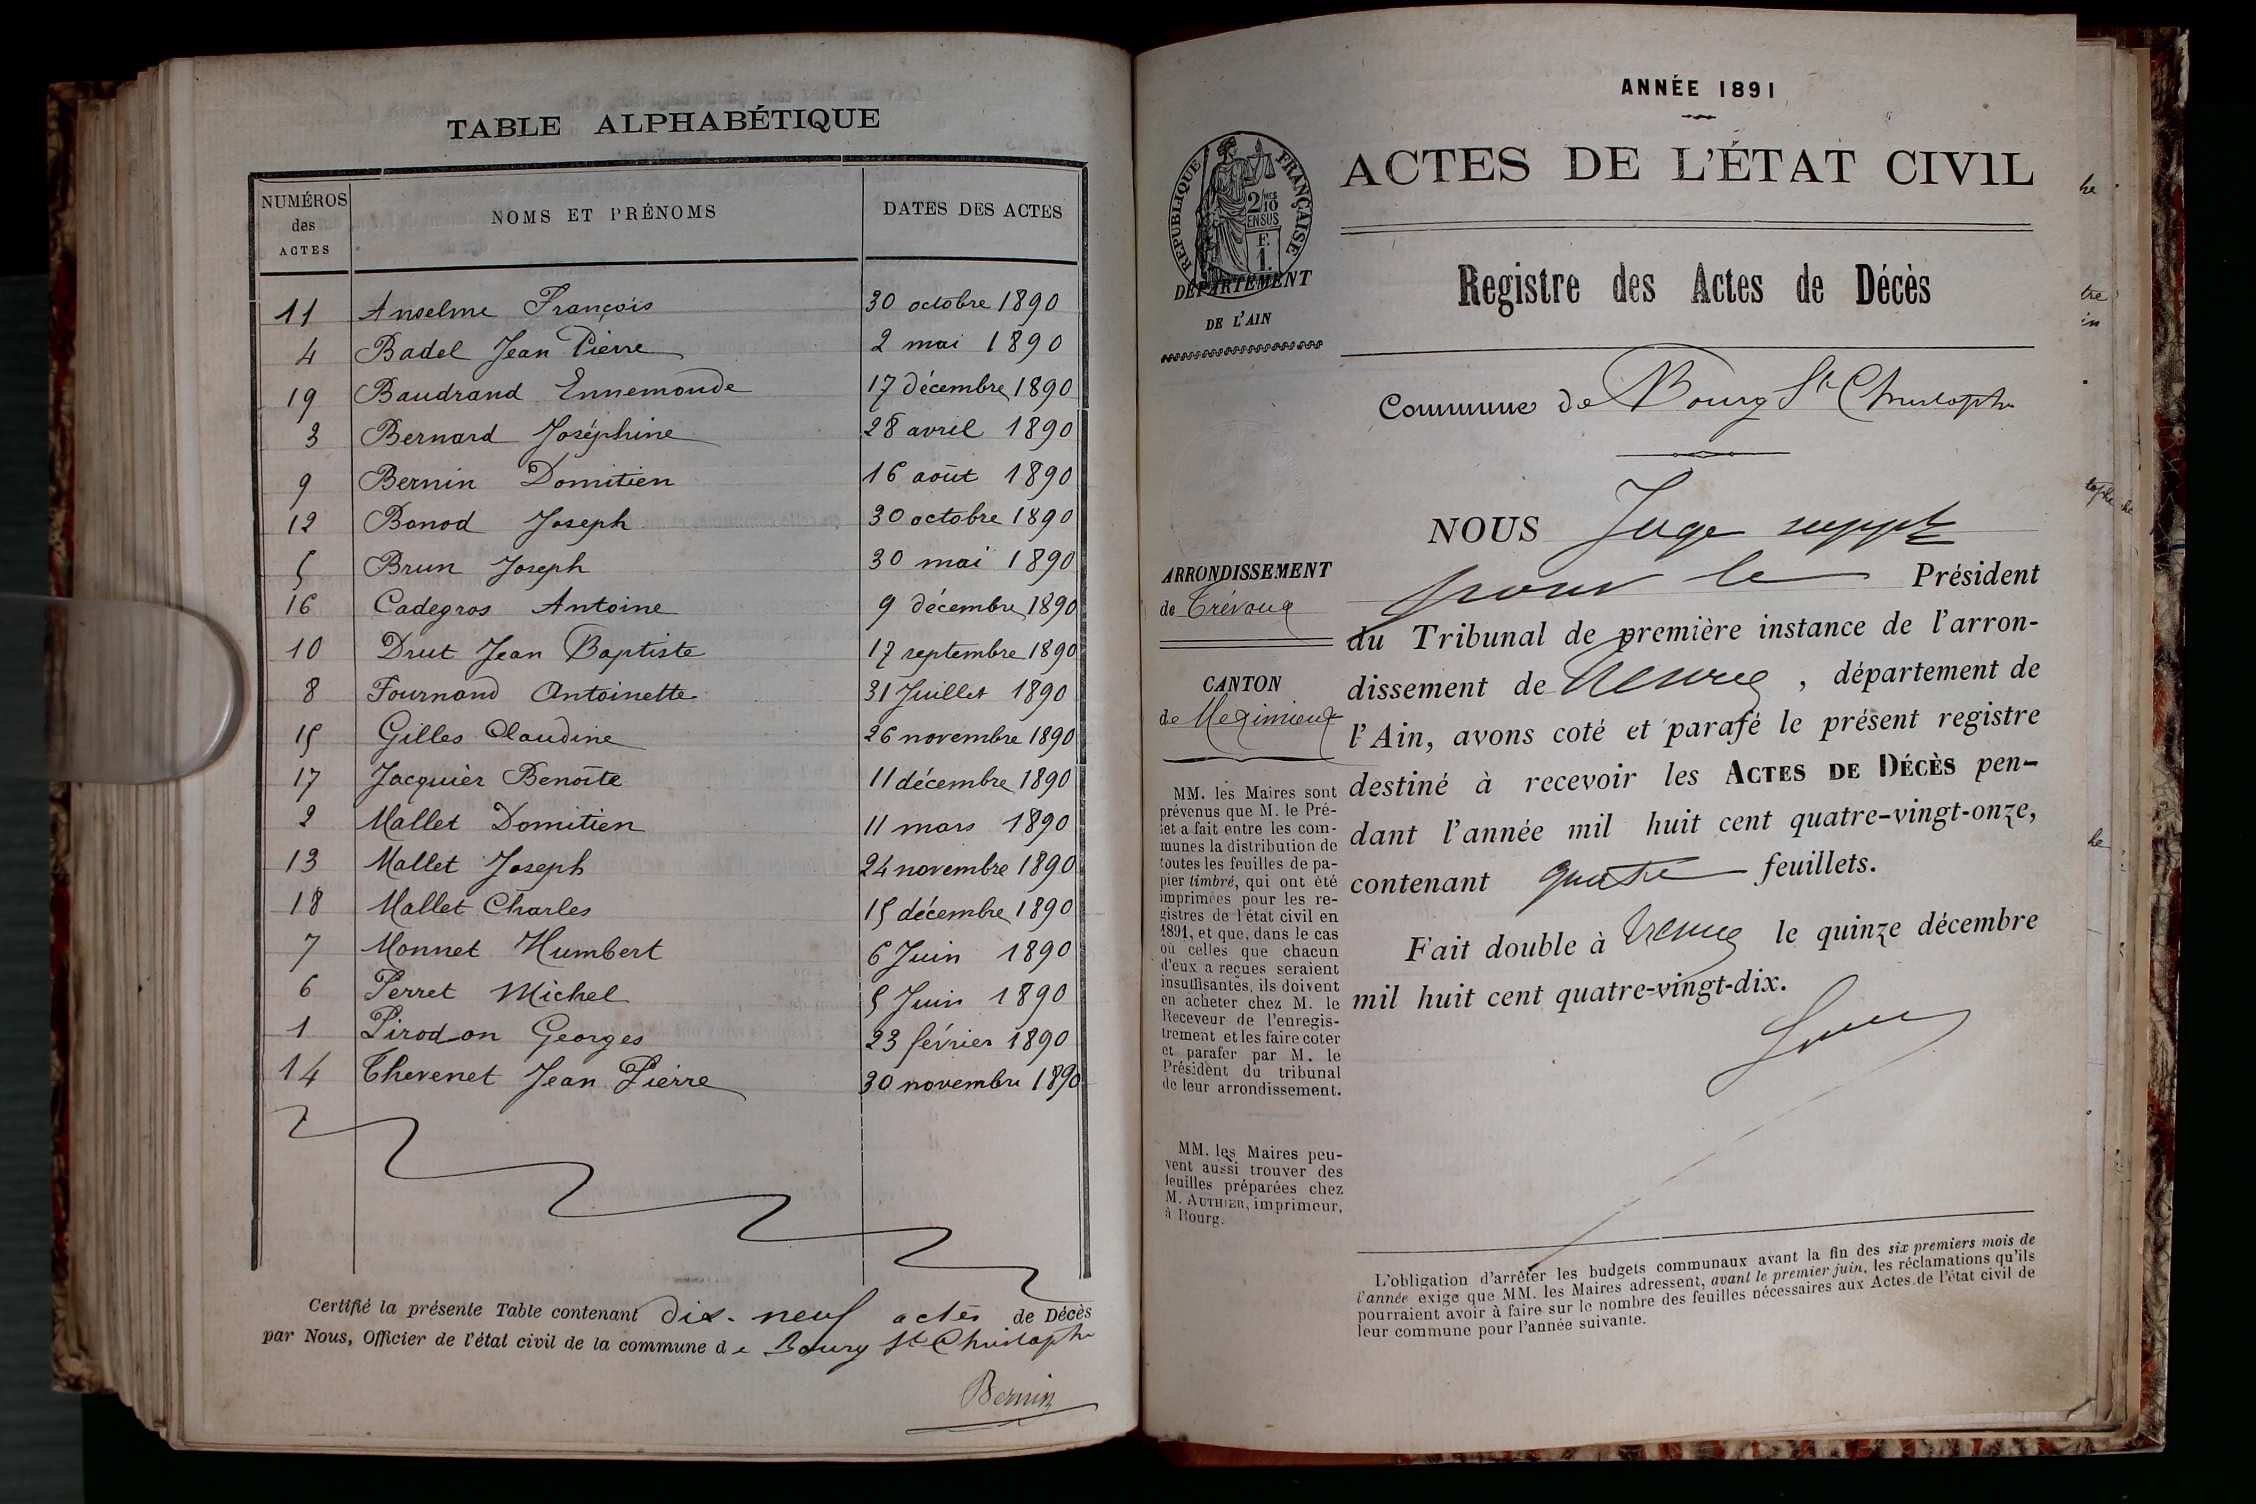 TABLE ALPHABÉTIQUE
NUMÉROS des ACTES NOMS ET PRÉNOMS DATES DES ACTES
11 Anselme François 30 octobre 1890
4 Badel Jean Pierre 2 mai 1890
19 Baudrand Ennemonde 17 décembre 1890
3 Bernard Joséphine 28 avril 1890
9 Bernin Domitien 16 août 1890
12 Bonod Joseph 30 octobre 1890
5 Brun Joseph 30 mai 1890
16 Cadegros Antoine 9 décembre 1890
10 Drut Jean Baptiste 17 septembre 1890
8 Fournand Antoinette 31 Juillet 1890
15 Gilles Claudine 26 novembre 1890
17 Jacquier Benoîte 11 décembre 1890
2 Mallet Domitien 11 mars 1890
13 Mallet Joseph 24 novembre 1890
18 Mallet Charles 15 décembre 1890
7 Monnet Humbert 6 Juin 1890
6 Perret Michel 5 Juin 1890
1 Pirodon Georges 23 février 1890
14 Thevenet Jean Pierre 30 novembre 1890
Certifié la présente Table contenant dix-neuf actes de Décès
par Nous, Officier de l'état civil de la commune de Bourg St Christophe
Bernin
ANNÉE 1891
ACTES DE L'ÉTAT CIVIL
RÉPUBLIQUE FRANÇAISE
2/10 MES
EN SUS
F.
1.
DÉPARTEMENT
DE L'AIN
Registre des Actes de Décès
Commune de Bourg St Christophe
ARRONDISSEMENT
de Trévoux
CANTON
de Meximieux
MM. les Maires sont
prévenus que M. le Pré-
fet a fait entre les com-
munes la distribution de
toutes les feuilles de pa-
pier timbré, qui ont été
imprimées pour les re-
gistres de l'état civil en
1891, et que, dans le cas
où celles que chacun
d'eux a reçues seraient
insuffisantes, ils doivent
en acheter chez M. le
Receveur de l'enregis-
trement et les faire coter
et parafer par M. le
Président du tribunal
de leur arrondissement.
MM. les Maires peu-
vent aussi trouver des
feuilles préparées chez
M. AUTHIER, imprimeur,
à Bourg.
NOUS Juge suppt
pour le Président
du Tribunal de première instance de l'arron-
dissement de Trévoux, département de
l'Ain, avons coté et parafé le présent registre
destiné à recevoir les ACTES DE DÉCÈS pen-
dant l'année mil huit cent quatre-vingt-onze,
contenant quatre feuillets.
Fait double à Trévoux le quinze décembre
mil huit cent quatre-vingt-dix.
L'obligation d'arrêter les budgets communaux avant la fin des six premiers mois de
l'année exige que MM. les Maires adressent, avant le premier juin, les réclamations qu'ils
pourraient avoir à faire sur le nombre des feuilles nécessaires aux Actes de l'état civil de
leur commune pour l'année suivante.